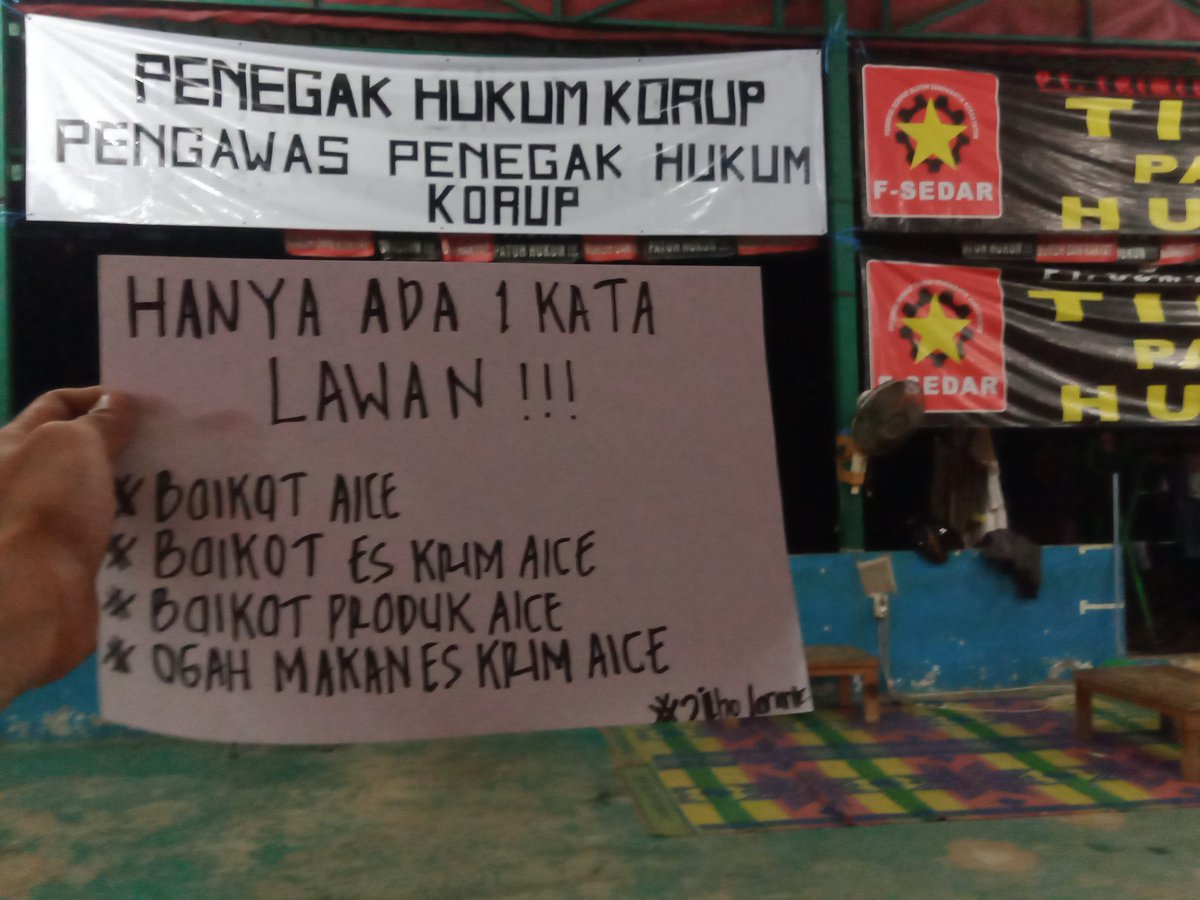 PENEGAK HUKUM KORUP
PENGAWAS PENEGAK HUKUM
KORUP
F-SEDAR
TI
PA
HU
F-SEDAR
TI
PA
HU
HANYA ADA 1 KATA
LAWAN !!!
* BOIKOT AICE
* BOIKOT ES KRIM AICE
* BOIKOT PRODUK AICE
* OGAH MAKAN ES KRIM AICE